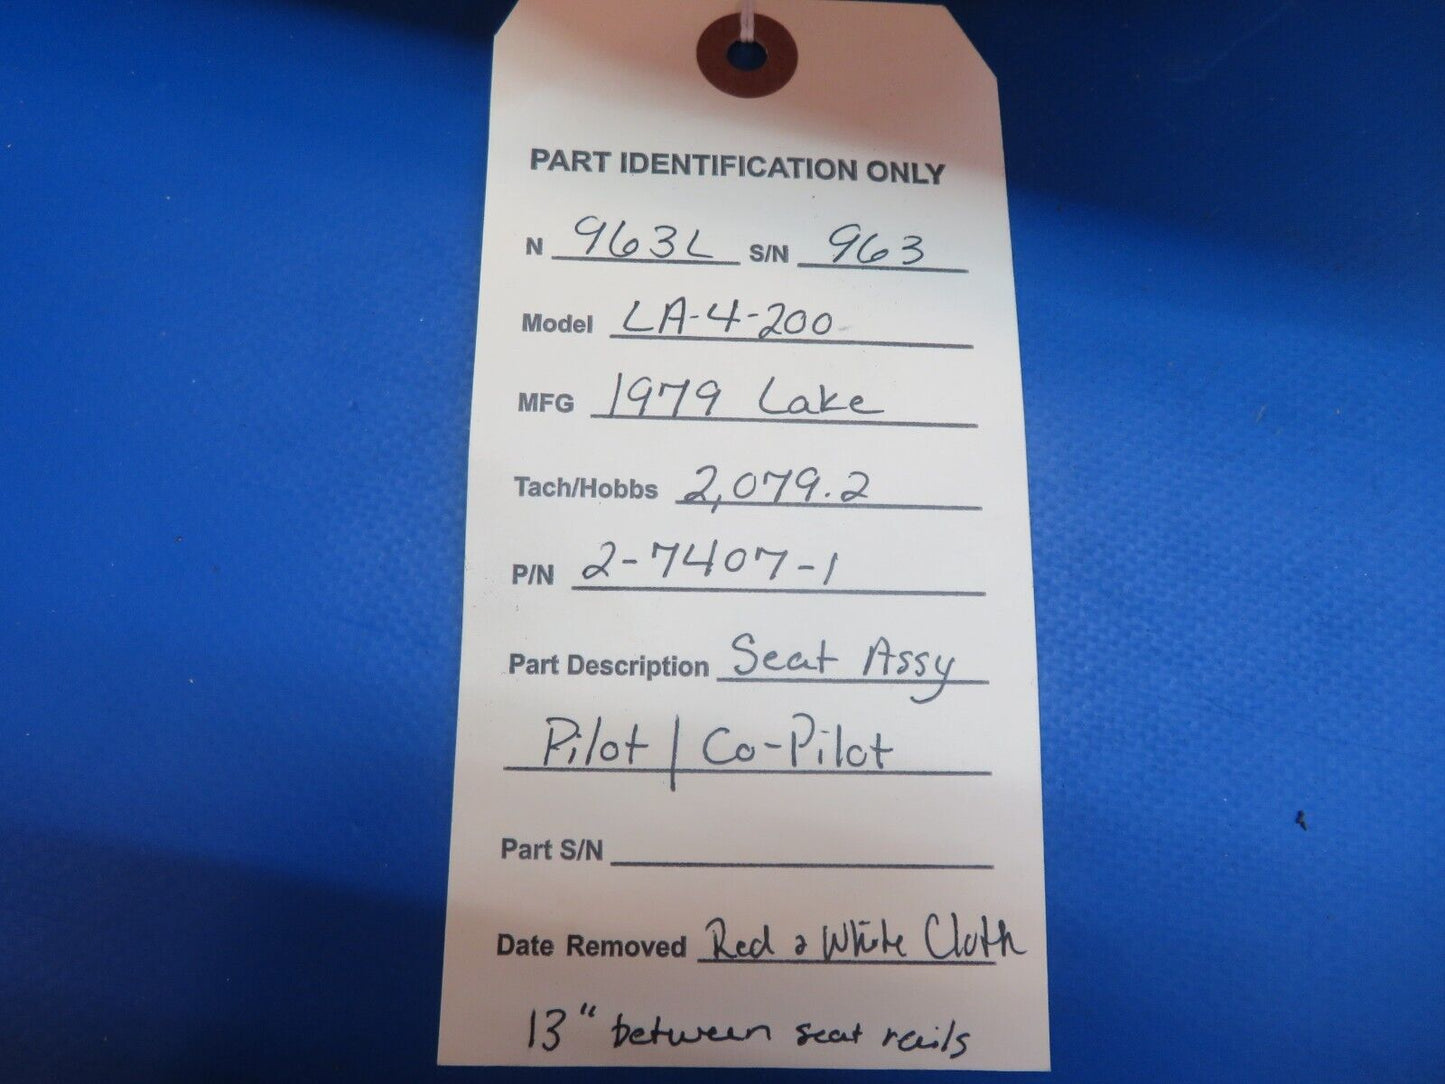 PART IDENTIFICATION ONLY
N 963L S/N 963
Model LA-4-200
MFG 1979 Lake
Tach/Hobbs 2,079.2
P/N 2-7407-1
Part Description Seat Assy
Pilot | Co-Pilot
Part S/N
Date Removed Red & White Cloth
13" between seat rails